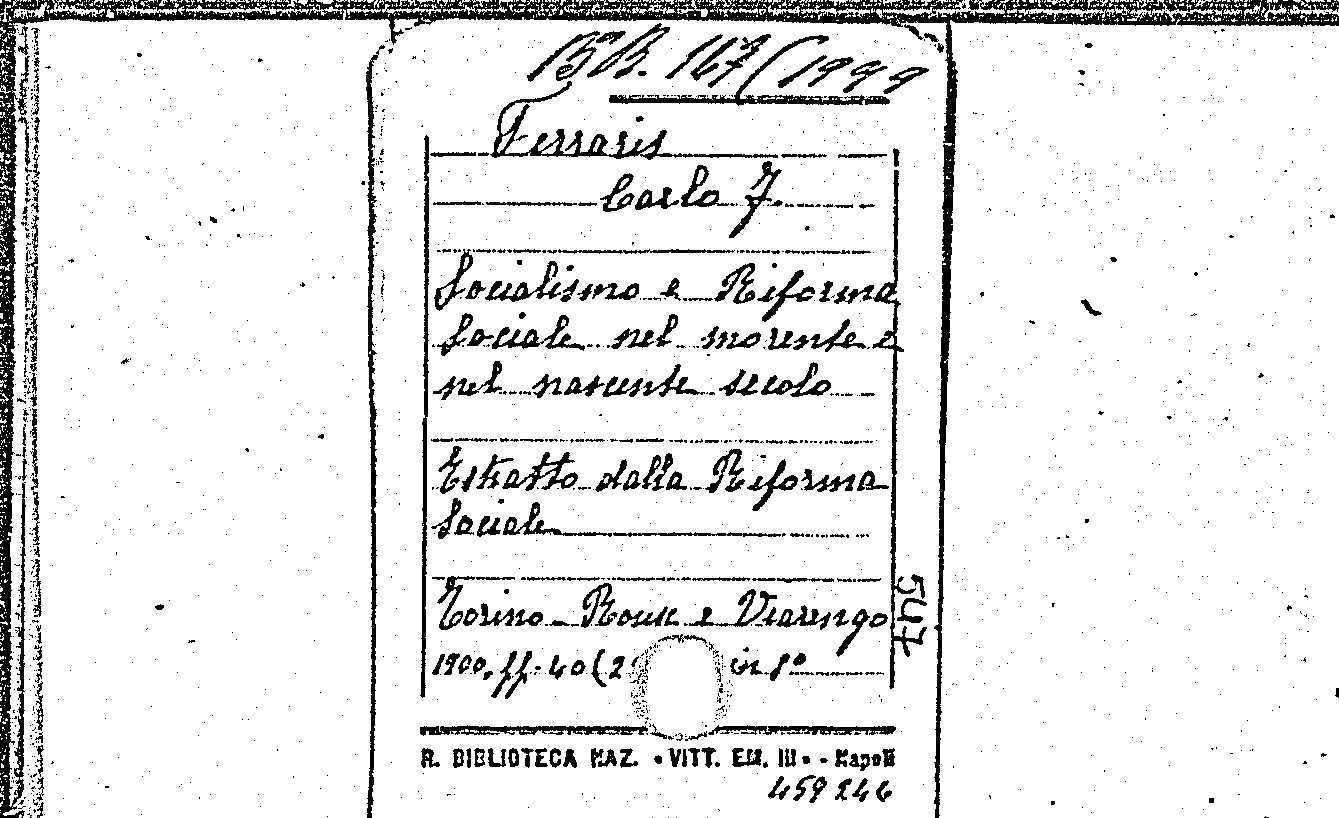 Bª B. 167 (1999
Ferraris
Carlo F.
Socialismo e Riforma
Sociale nel morente e
nel nascente secolo
Estratto dalla Riforma
Sociale
Torino - Roux e Viarengo
1900, ff. 40 (2 in 8º
547
R. BIBLIOTECA NAZ. • VITT. EM. III • - Napoli
459246